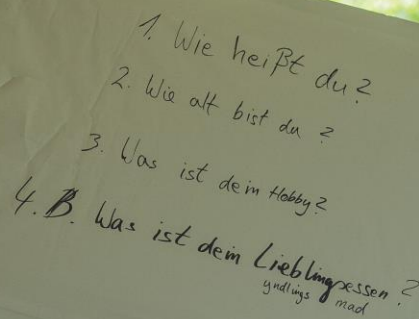 1. Wie heißt du?
2. Wie alt bist du?
3. Was ist dein Hobby?
4. B. Was ist dein Lieblingsessen?
yndlings mad